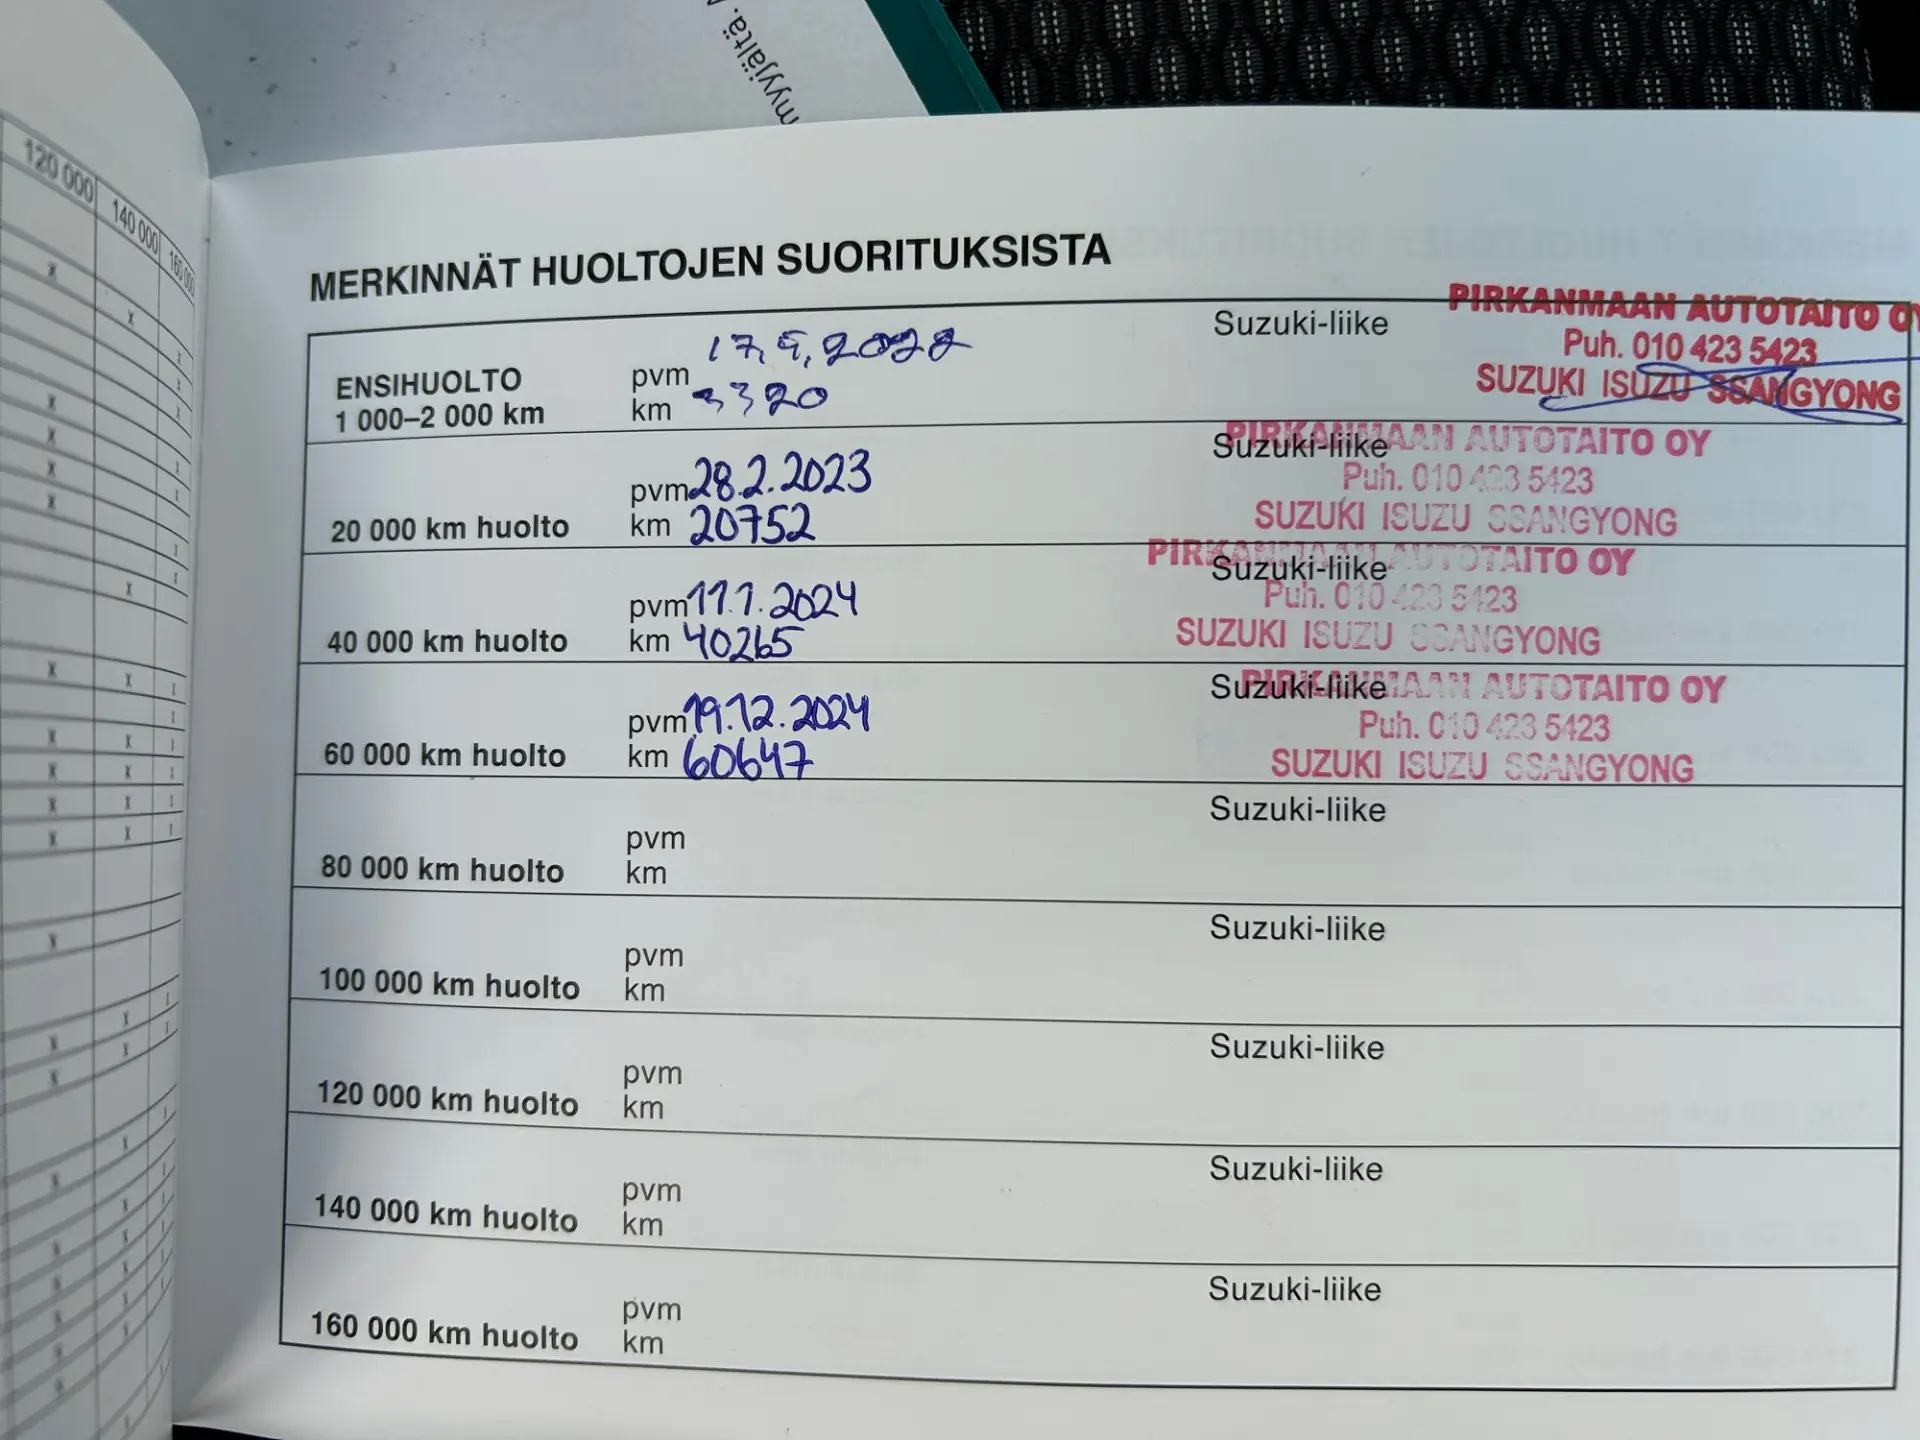 myyjältä.
120 000
140 000
160 000
MERKINNÄT HUOLTOJEN SUORITUKSISTA
ENSIHUOLTO
1 000–2 000 km
pvm 17.5.2022
km 3320
Suzuki-liike
PIRKANMAAN AUTOTAITO OY
Puh. 010 423 5423
SUZUKI ISUZU SSANGYONG
20 000 km huolto
pvm 28.2.2023
km 20752
Suzuki-liike
PIRKANMAAN AUTOTAITO OY
Puh. 010 423 5423
SUZUKI ISUZU SSANGYONG
40 000 km huolto
pvm 11.1.2024
km 40265
Suzuki-liike
PIRKANMAAN AUTOTAITO OY
Puh. 010 423 5423
SUZUKI ISUZU SSANGYONG
60 000 km huolto
pvm 19.12.2024
km 60647
Suzuki-liike
PIRKANMAAN AUTOTAITO OY
Puh. 010 423 5423
SUZUKI ISUZU SSANGYONG
80 000 km huolto
pvm
km
Suzuki-liike
100 000 km huolto
pvm
km
Suzuki-liike
120 000 km huolto
pvm
km
Suzuki-liike
140 000 km huolto
pvm
km
Suzuki-liike
160 000 km huolto
pvm
km
Suzuki-liike